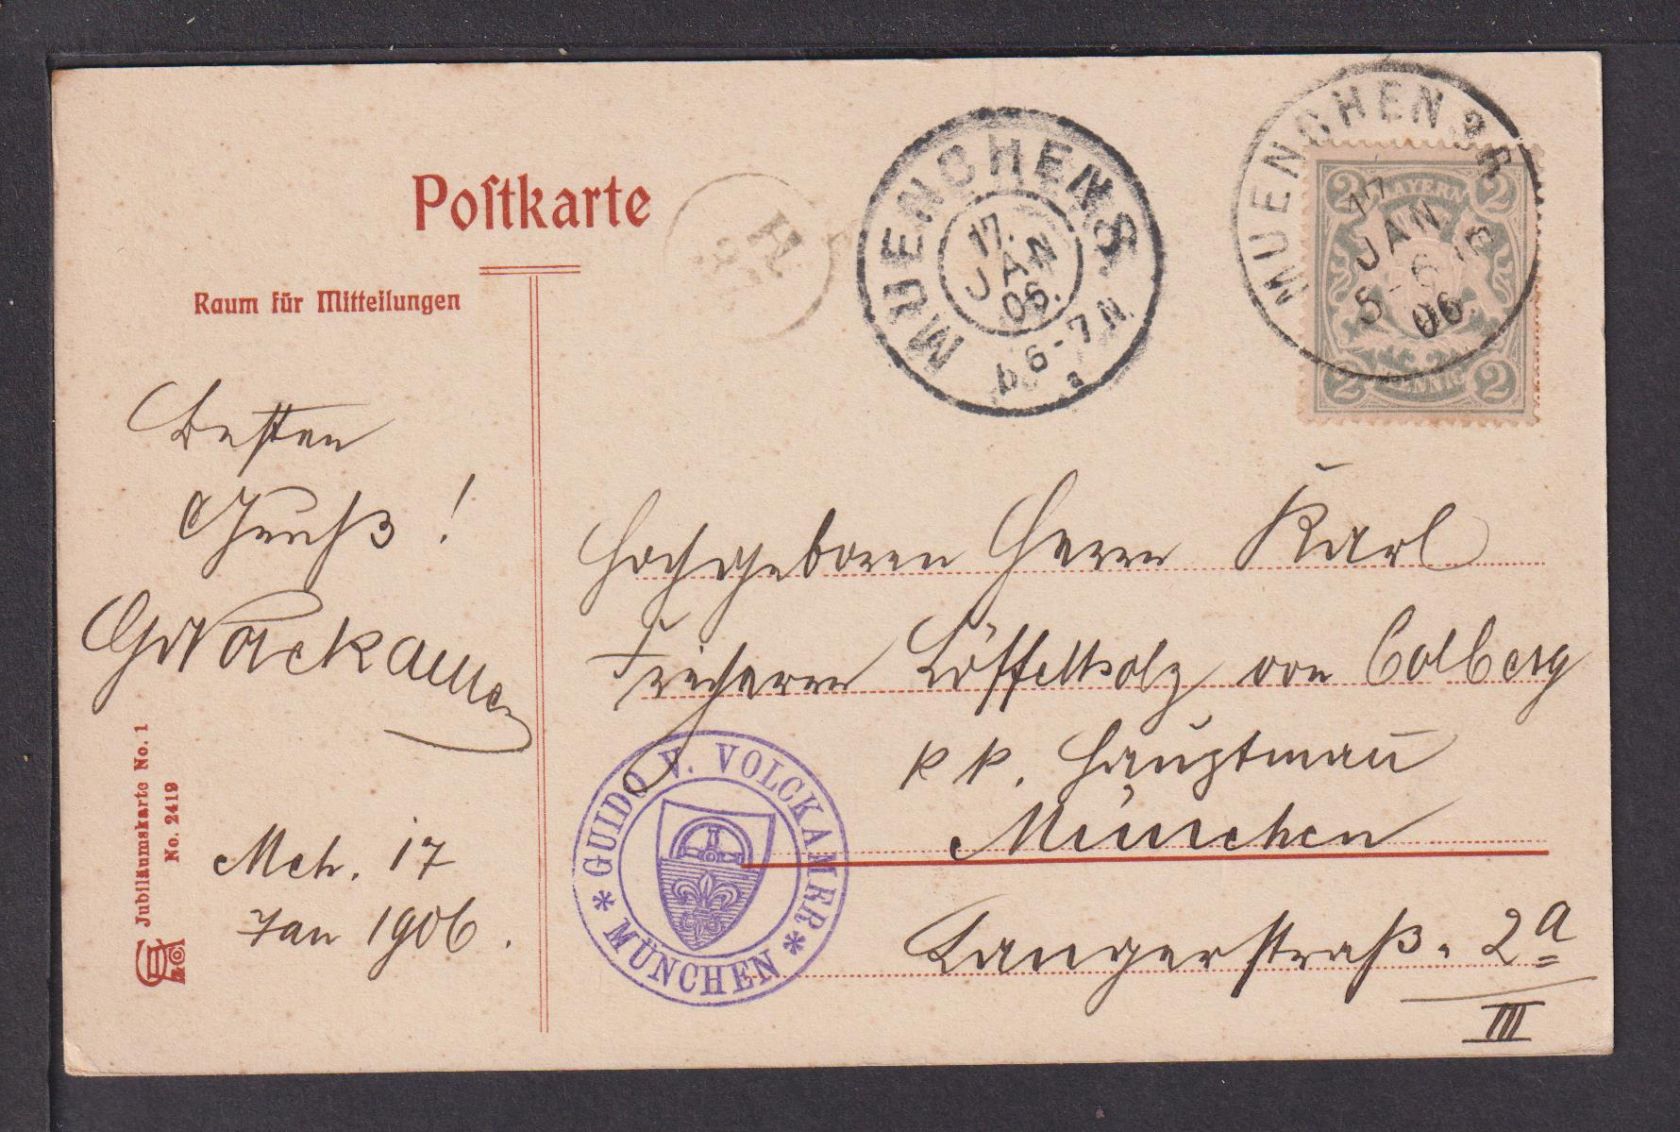 Postkarte
Raum für Mitteilungen
Besten
Gruß!
GvVolckamer
Mch. 17
Jan 1906.
Jubiläumskarte No. 1
No. 2419
MUENCHEN 8
17.
JAN
06.
6-7 N
MUENCHEN 3R
17
JAN
5-6 N
06
2 BAYERN 2
2 PFENNIG 2
Hochgeboren Herrn Karl
Freiherrn Löffelholz von Colberg
p p. Hauptmann
München
Langerstraß. 2a
III
* GUIDO V. VOLCKAMER *
MÜNCHEN